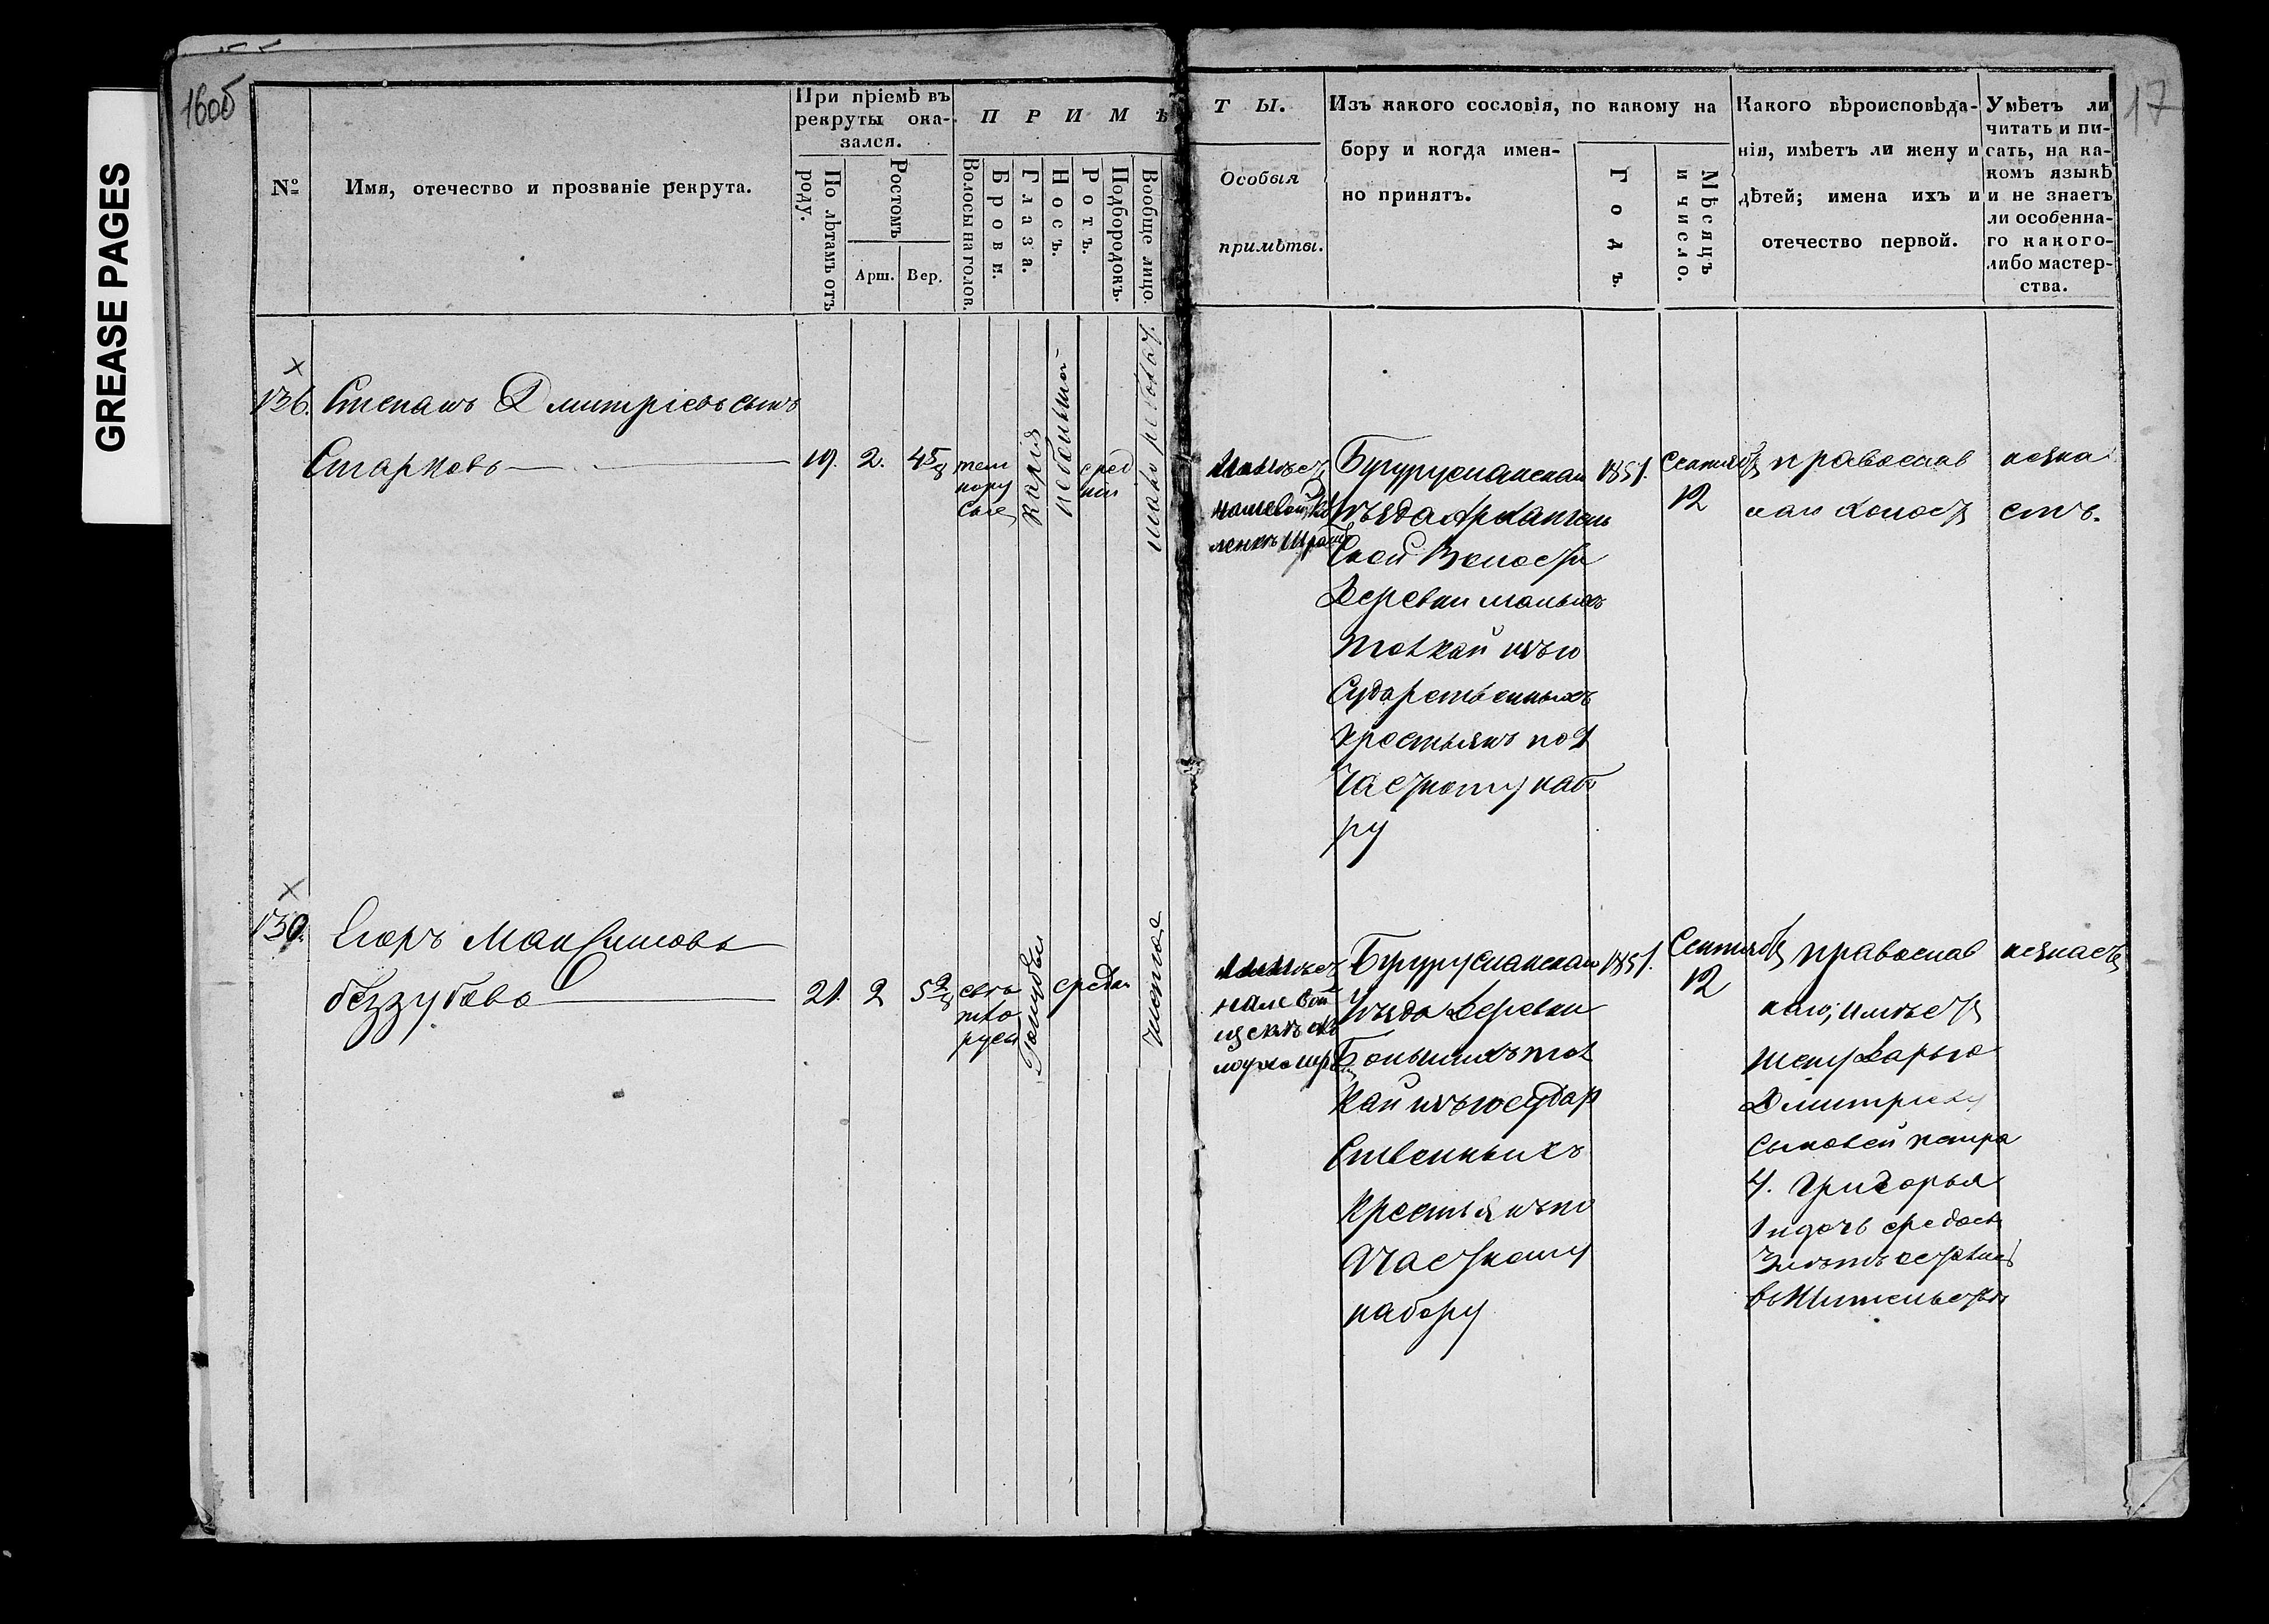 GREASE PAGES
16об
17
№
Имя, отечество и прозваніе рекрута.
При пріемѣ въ
рекруты ока-
зался.
По лѣтамъ отъ
роду.
Ростомъ
Арш.
Вер.
П Р И М Ѣ
Волосы на голов.
Брови.
Глаза.
Носъ.
Ротъ.
Подбородокъ.
Вообще лицо.
Т Ы.
Особыя
примѣты.
Изъ какого сословія, по какому на
бору и когда имен-
но принятъ.
Годъ.
Мѣсяцъ
и число.
Какого вѣроисповѣда-
нія, имѣетъ ли жену и
дѣтей; имена ихъ и
отечество первой.
Умѣетъ ли
читать и пи-
сать, на ка-
комъ языкѣ
и не знаетъ
ли особенна-
го какого-
либо мастер-
ства.
136.
Степанъ Дмитріевъ сынъ
Старковъ
19.
2.
4 5/8
тем
нору
сые
карія
небольшой
сред
ній
имѣетъ
Бугурусланскаго
Уѣзда Архангель
ской Волости
Деревни малыхъ
Толкай изъ го
сударственныхъ
крестьянъ по 9
частному набо
ру
1851.
Сентяб
12
православ
наго холостъ
незна
етъ.
Егоръ Максимовъ
беззубовъ
21.
2
5 2/8
свѣ
тло
русы
Голубы
средн
чистое
имѣетъ
на левой
щекѣ
Бугурусланскаго
Уѣзда Деревни
Большихъ тол
кай изъ государ
ственныхъ
крестьянъ по
9 частному
набору
1851.
Сентяб
12
православ
наго, имѣетъ
жену Дарью
Дмитріеву
сыновей петра
4. Григорья
1 и дочь